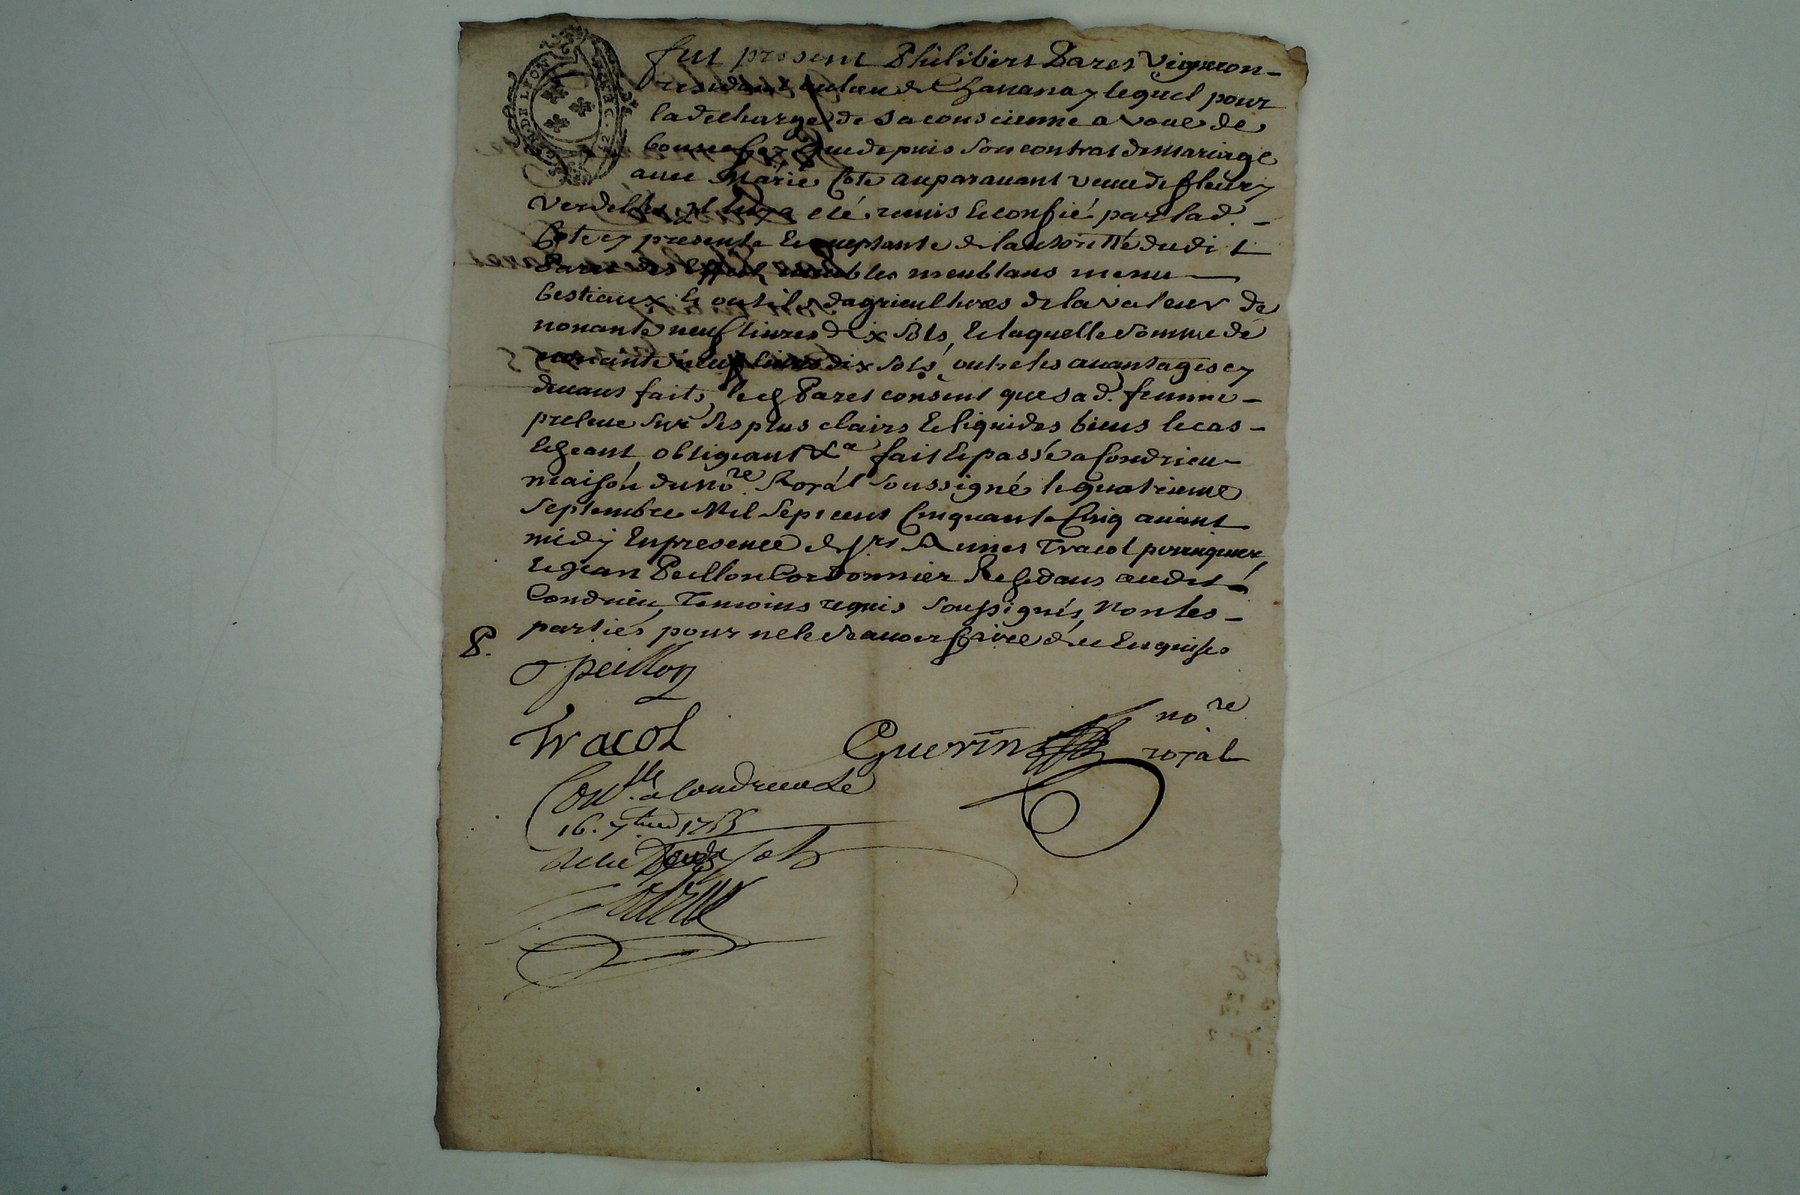 GEN. DE LYON
fut present Philibert Pares Vigneron
residant au lieu de Chavanay lequel pour
la decharge de sa conscienne a voué de
bonne foy que depuis son contrat de mariage
avec Marie Cote auparavant veuve de fleury
Verdel il luy a eté remis & confié par lad.
Cote cy presente & de lautoritté dudit
Pares des effets meubles meublans menu
bestiaux & outils dagricultures de la valeur de
nonante neuf livres dix sols, & laquelle somme de
nonante neuf livres dix sols, outre les avantages cy
devans faits, led Pares consent que sad. femme
preleve sur ses plus clairs & liquides biens le cas
echeant, obligeant &a fait & passé a Condrieu
maison du nore Royal soussigné le quatrieme
Septembre Mil sept cent cinquante cinq avant
midy En presence de srs Tracol perruquier,
& Jean Peillon Cordonnier Residans audit
Condrieu, temoins requis soussignés, non les
parties pour ne le scavoir faire de ce Enquises
P.
peillon
Tracol
Guerin nore
royal
Conlle a Condrieu le
16. 7bre 1755